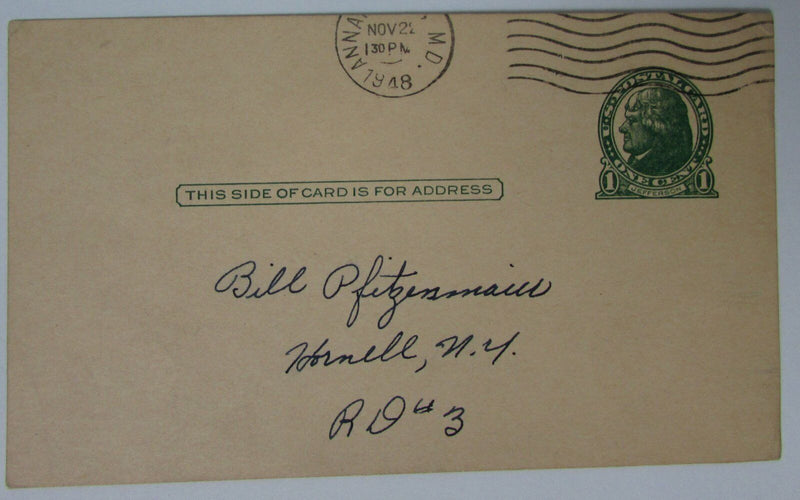 LANNA M D.
NOV 22
1 30 PM
1948
U·S·POSTAL CARD
ONE CENT
1 JEFFERSON 1
THIS SIDE OF CARD IS FOR ADDRESS
Bill Pfitzenmaier
Hornell, N.Y.
RD #3